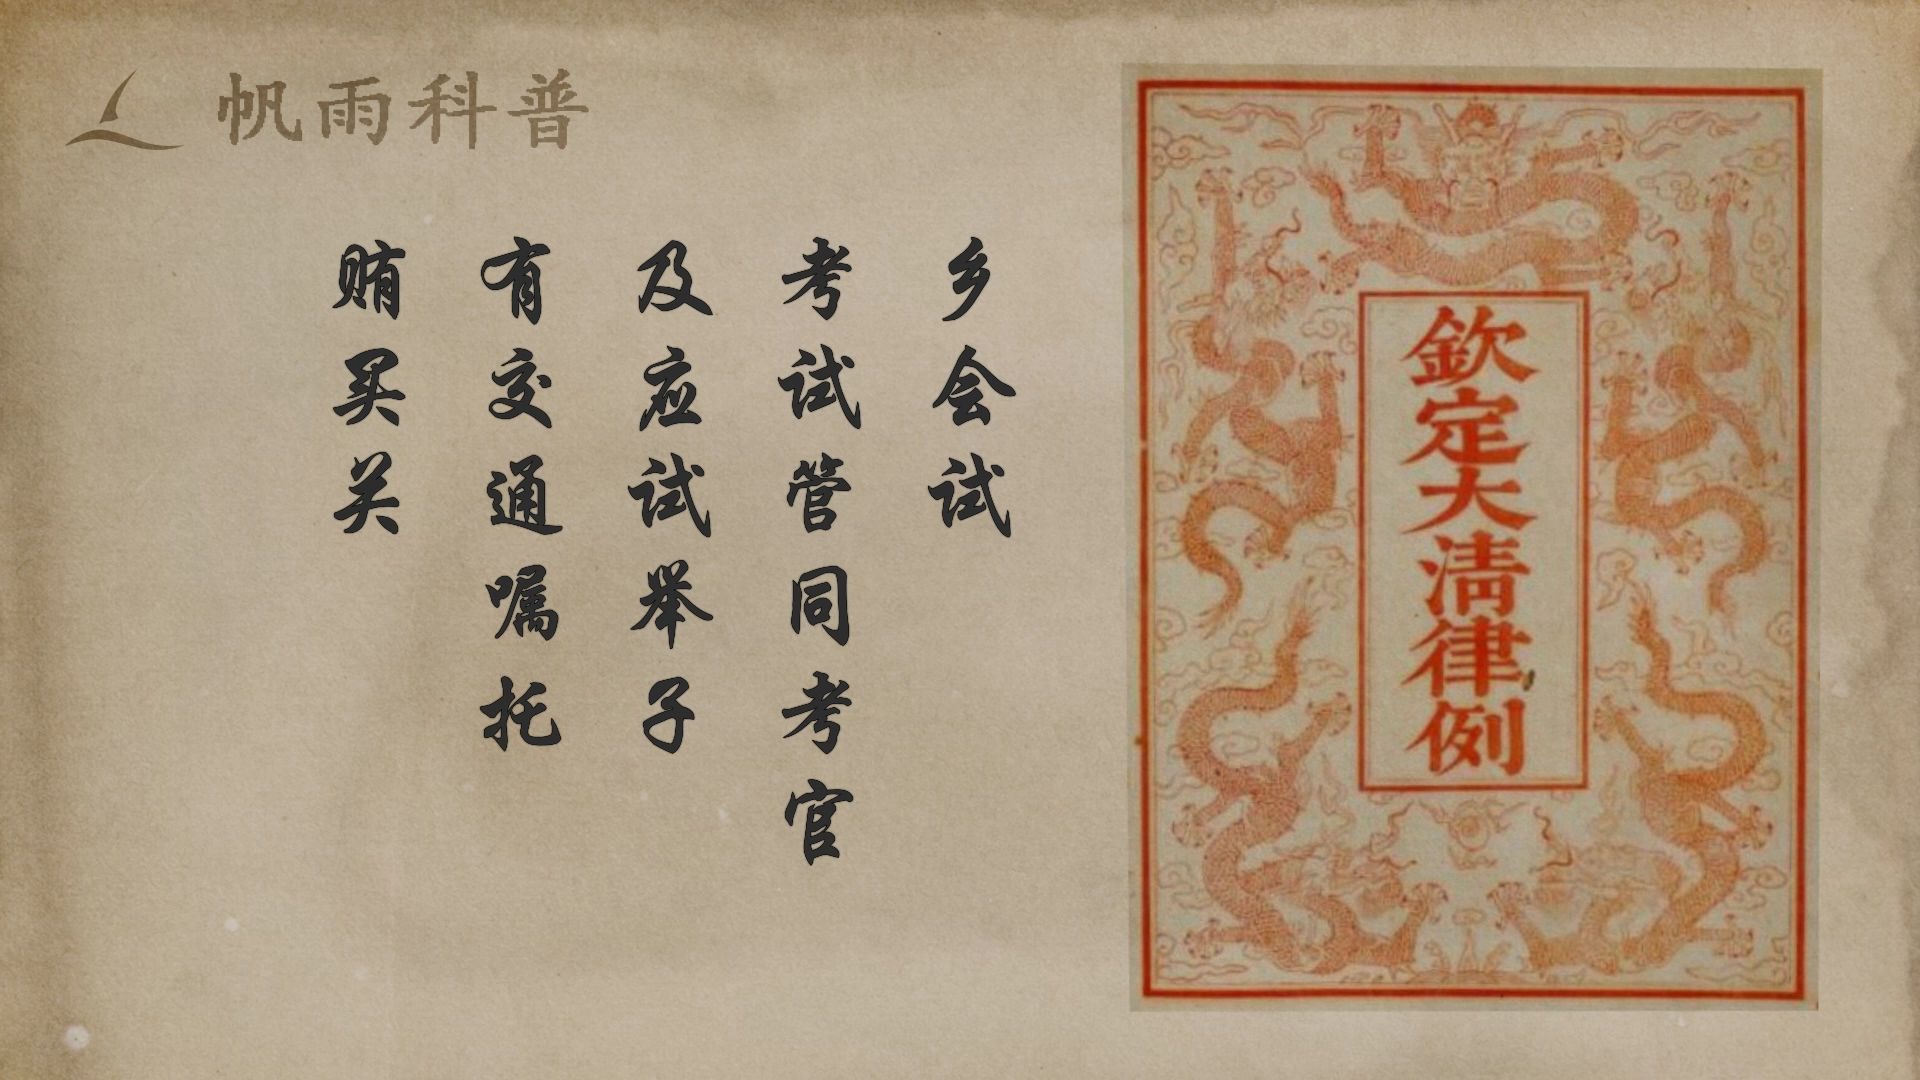 帆雨科普
乡会试
考试管同考官
及应试举子
有交通嘱托
贿买关
欽定大清律例